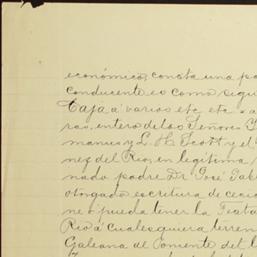 económico, consta una pa
conducente es como sigu
Caja á varios etc etc
ras, entero de los Señores
manus y L. H. Scott y el
nez del Rio, en legítima
nado padre Dr José Gab
otorgado escritura de cecio
ne ó pueda tener la Testa
Rio á cualesquiera terren
Galeana de Poniente del